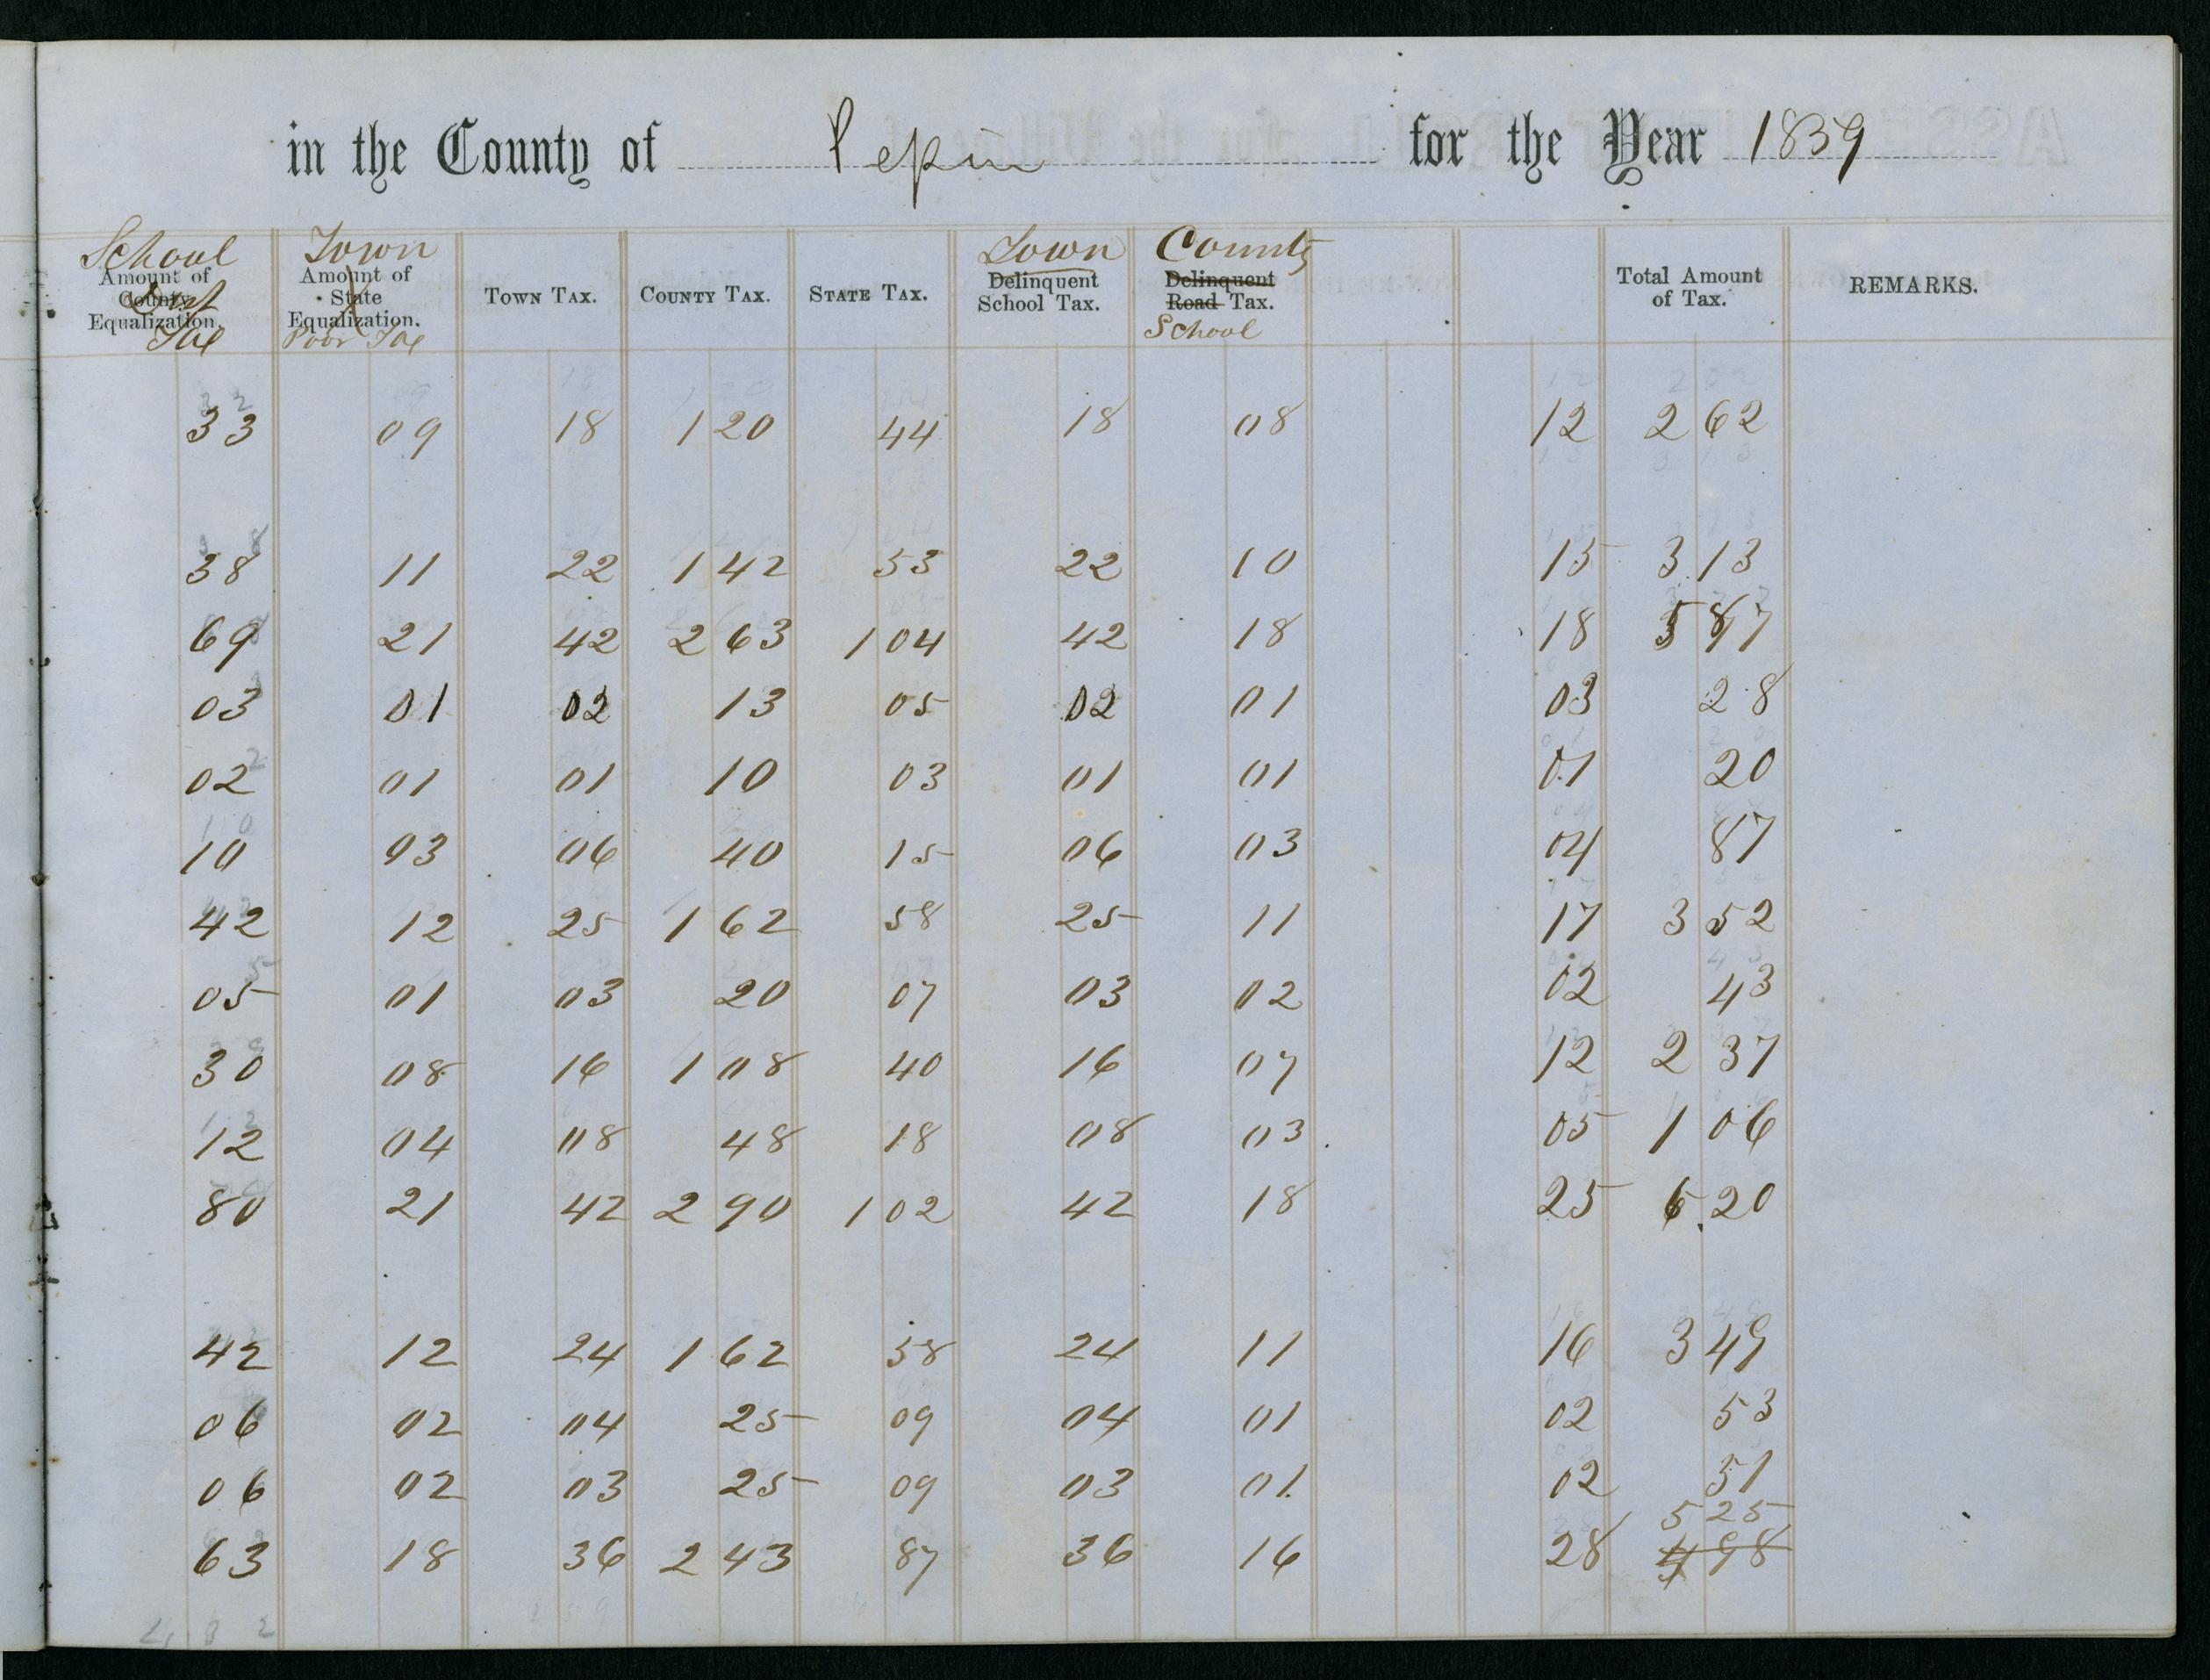 in the County of Pepin for the Year 1859
School Town Town County
Amount of County Equalization. Dist Tax
Amount of State Equalization. Poor Tax
TOWN TAX. COUNTY TAX. STATE TAX.
Delinquent School Tax.
Delinquent Road Tax. School
Total Amount of Tax.
REMARKS.
33 09 18 1 20 44 18 08 12 2 62
38 11 22 1 42 53 22 10 15 3 13
69 21 42 2 63 1 04 42 18 18 5 87
03 01 02 13 05 02 01 03 28
02 01 01 10 03 01 01 01 20
10 03 06 40 15 06 03 04 87
42 12 25 1 62 58 25 11 17 3 52
05 01 03 20 07 03 02 02 43
30 08 16 1 08 40 16 07 12 2 37
12 04 08 48 18 08 03 05 1 06
80 21 42 2 90 1 02 42 18 25 6 20
42 12 24 1 62 58 24 11 16 3 49
06 02 04 25 09 04 01 02 53
06 02 03 25 09 03 01 02 51
5 25
63 18 36 2 43 87 36 16 28 4 98